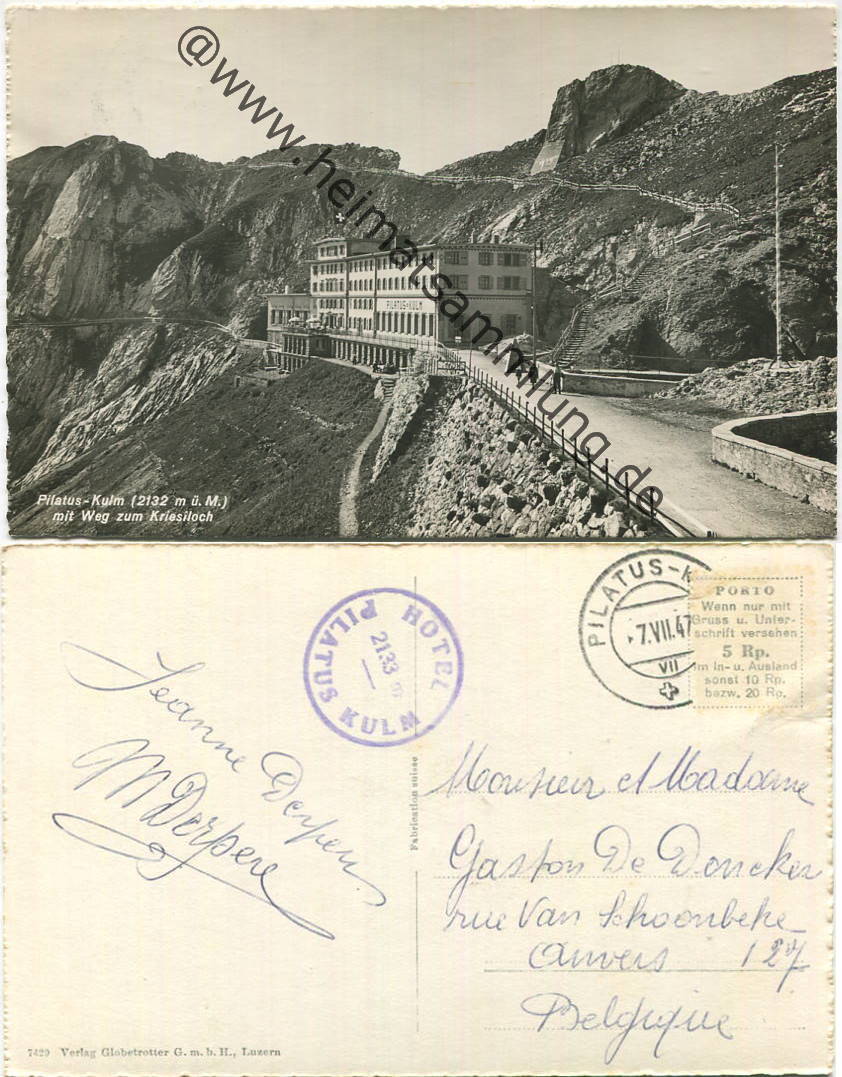 @www.heimatsammlung.de
PILATUS-KULM
Pilatus-Kulm (2132 m ü. M.)
mit Weg zum Kriesiloch
HOTEL
PILATUS KULM
2133 m
PILATUS-K
-7.VII.47
VII
PORTO
Wenn nur mit
Gruss u. Unter-
schrift versehen
5 Rp.
im In- u. Ausland
sonst 10 Rp.
bezw. 20 Rp.
Jeanne Derpere
M Derpere
Fabrication suisse
Monsieur et Madame
Gaston De Doncker
rue Van Schoonbeke
Anvers 127
Belgique
7429 Verlag Globetrotter G. m. b. H., Luzern